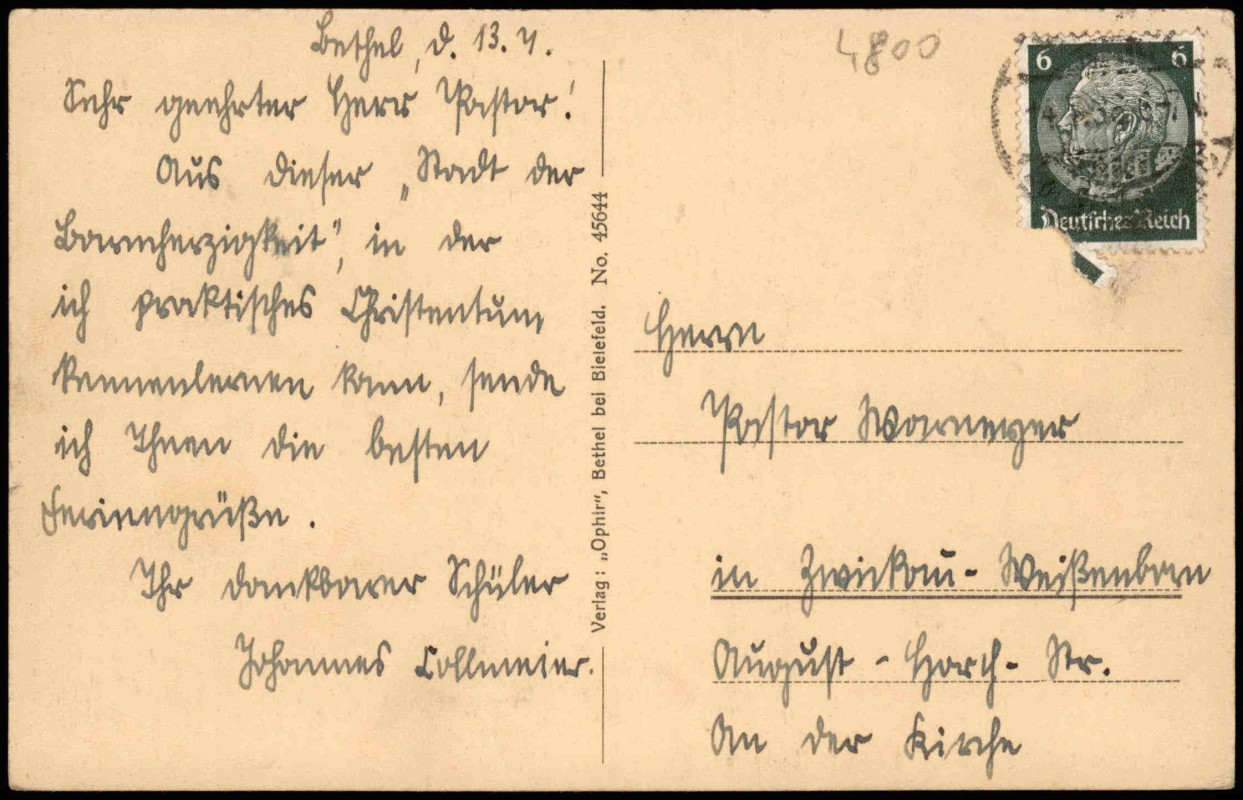 Bethel, d. 13. 7.
Sehr geehrter Herr Pastor!
Aus dieser „Stadt der
Barmherzigkeit", in der
ich praktisches Christentum
kennenlernen kann, sende
ich Ihnen die besten
Feriengrüße.
Ihr dankbarer Schüler
Johannes Collmeier.
Verlag: „Ophir", Bethel bei Bielefeld. No. 45644
4800
6 6
Deutsches Reich
Herrn
Pastor Warneyer
in Zwickau-Weißenborn
August-Horch-Str.
An der Kirche